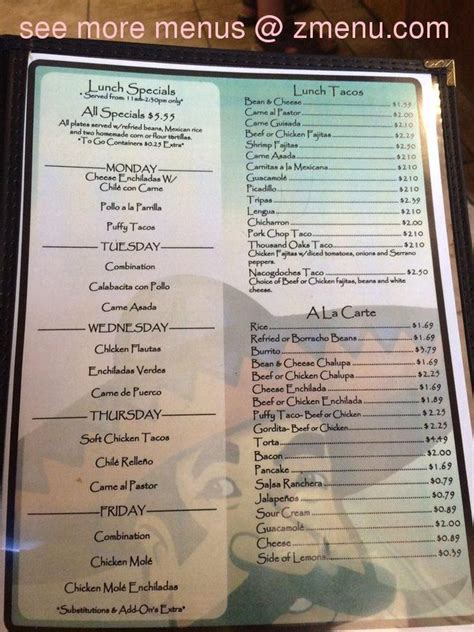 see more menus @ zmenu.com
Lunch Specials
*Served from 11am-2:30pm only*
All Specials $5.55
All plates served w/refried beans, Mexican rice
and two homemade corn or flour tortillas.
*To Go Containers $0.25 Extra*
MONDAY
Cheese Enchiladas W/
Chilé con Carne
Pollo a la Parrilla
Puffy Tacos
TUESDAY
Combination
Calabacita con Pollo
Carne Asada
WEDNESDAY
Chicken Flautas
Enchiladas Verdes
Carne de Puerco
THURSDAY
Soft Chicken Tacos
Chilé Relleño
Carne al Pastor
FRIDAY
Combination
Chicken Molé
Chicken Molé Enchiladas
*Substitutions & Add-On's Extra*
Lunch Tacos
Bean & Cheese $1.59
Carne al Pastor $2.00
Carne Guisada $2.10
Beef or Chicken Fajitas $2.29
Shrimp Fajitas $2.50
Carne Asada $2.10
Carnitas a la Mexicana $2.10
Guacamolé $2.10
Picadillo $2.10
Tripas $2.39
Lengua $2.10
Chicharron $2.00
Pork Chop Taco $2.10
Thousand Oaks Taco $2.10
Chicken Fajitas w/diced tomatoes, onions and Serrano
peppers.
Nacogdoches Taco $2.50
Choice of Beef or Chicken fajitas, beans and white
cheese.
A La Carte
Rice $1.69
Refried or Borracho Beans $1.69
Burrito $3.79
Bean & Cheese Chalupa $1.89
Beef or Chicken Chalupa $2.25
Cheese Enchilada $1.69
Beef or Chicken Enchilada $1.89
Puffy Taco- Beef or Chicken $2.25
Gordita- Beef or Chicken $2.25
Torta $4.49
Bacon $2.00
Pancake $1.69
Salsa Ranchera $0.79
Jalapeños $0.79
Sour Cream $0.89
Guacamolé $2.00
Cheese $0.89
Side of Lemons $0.39